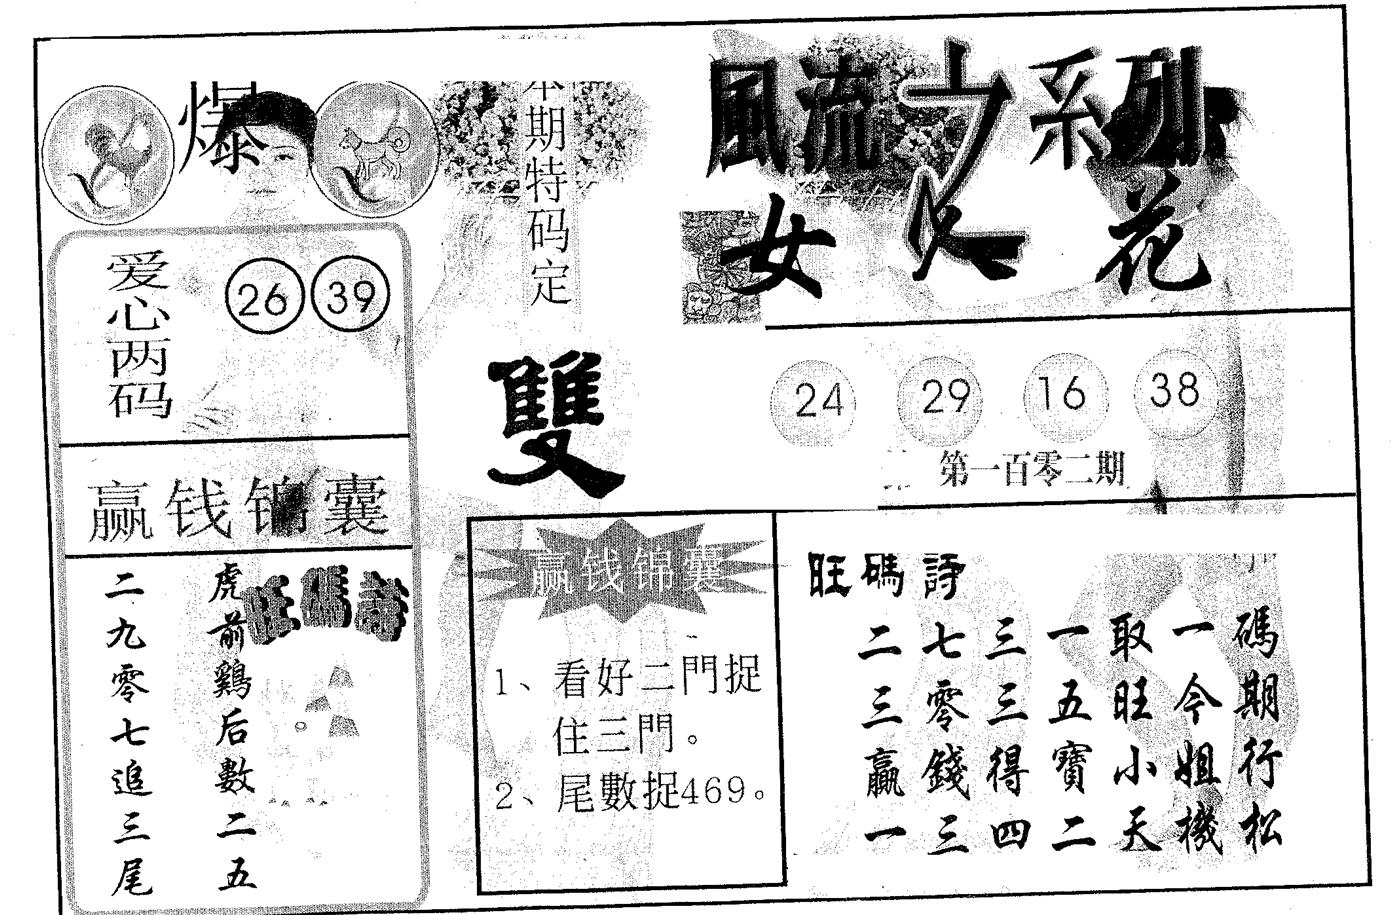 爆
本期特码定
雙
爱心两码
26 39
赢钱锦囊
旺碼詩
虎前鷄后數二五
二九零七追三尾
風流女系列
女人花
24 29 16 38
第一百零二期
赢钱锦囊
1、看好二門捉
住三門。
2、尾數捉469。
旺碼詩
碼期行松
一今姐機
取旺小天
一五寶二
三三得四
七零錢三
二三贏一